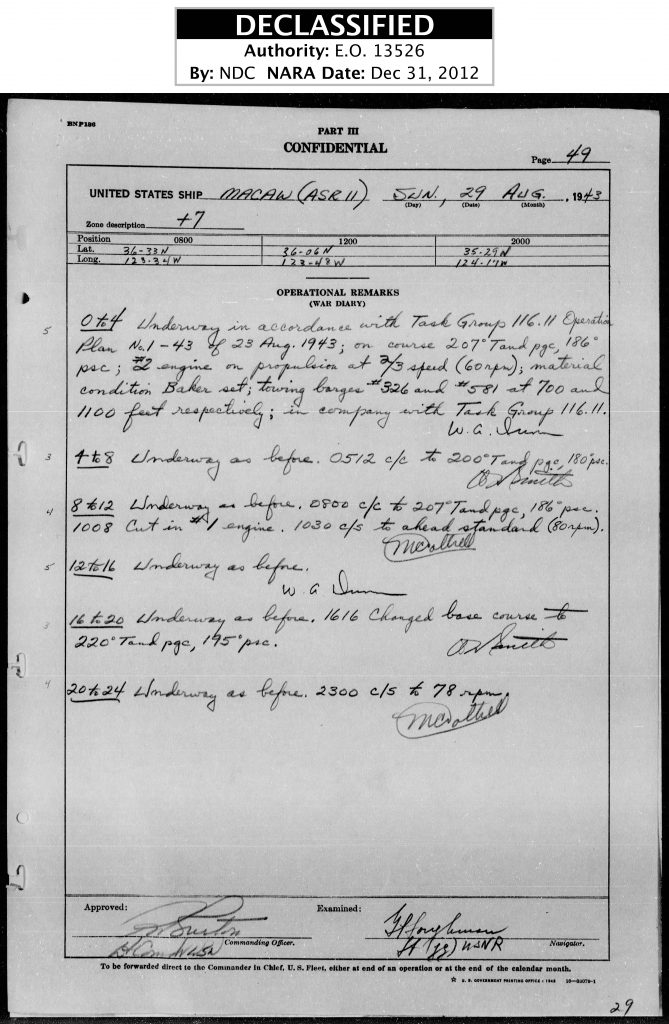 DECLASSIFIED
Authority: E.O. 13526
By: NDC NARA Date: Dec 31, 2012
BNP136
PART III
CONFIDENTIAL
Page 49
UNITED STATES SHIP MACAW (ASR 11) SUN., 29 AUG. , 1943
(Day) (Date) (Month)
Zone description +7
Position 0800 1200 2000
Lat. 36-33N 36-06N 35-29N
Long. 123-34W 123-48W 124-17W
OPERATIONAL REMARKS
(WAR DIARY)
5 0 to 4 Underway in accordance with Task Group 116.11 Operation
Plan No. 1-43 of 23 Aug. 1943; on course 207° T and pgc, 186°
psc; #2 engine on propulsion at 2/3 speed (60 rpm); material
condition Baker set; towing barges #326 and #581 at 700 and
1100 feet respectively; in company with Task Group 116.11.
W. A. Dunn
3 4 to 8 Underway as before. 0512 c/c to 200° T and pgc, 180° psc.
Smith
4 8 to 12 Underway as before. 0800 c/c to 207° T and pgc, 186° psc.
1008 Cut in #1 engine. 1030 c/s to ahead standard (80 rpm).
5 12 to 16 Underway as before.
W A Dunn
3 16 to 20 Underway as before. 1616 Changed base course to
220° T and pgc, 195° psc.
Smith
4 20 to 24 Underway as before. 2300 c/s to 78 rpm.
Approved: Examined:
Burton
Lt Comdr USN Commanding Officer. Lt (jg) USNR Navigator.
To be forwarded direct to the Commander in Chief, U. S. Fleet, either at end of an operation or at the end of the calendar month.
☆ U. S. GOVERNMENT PRINTING OFFICE : 1943
29